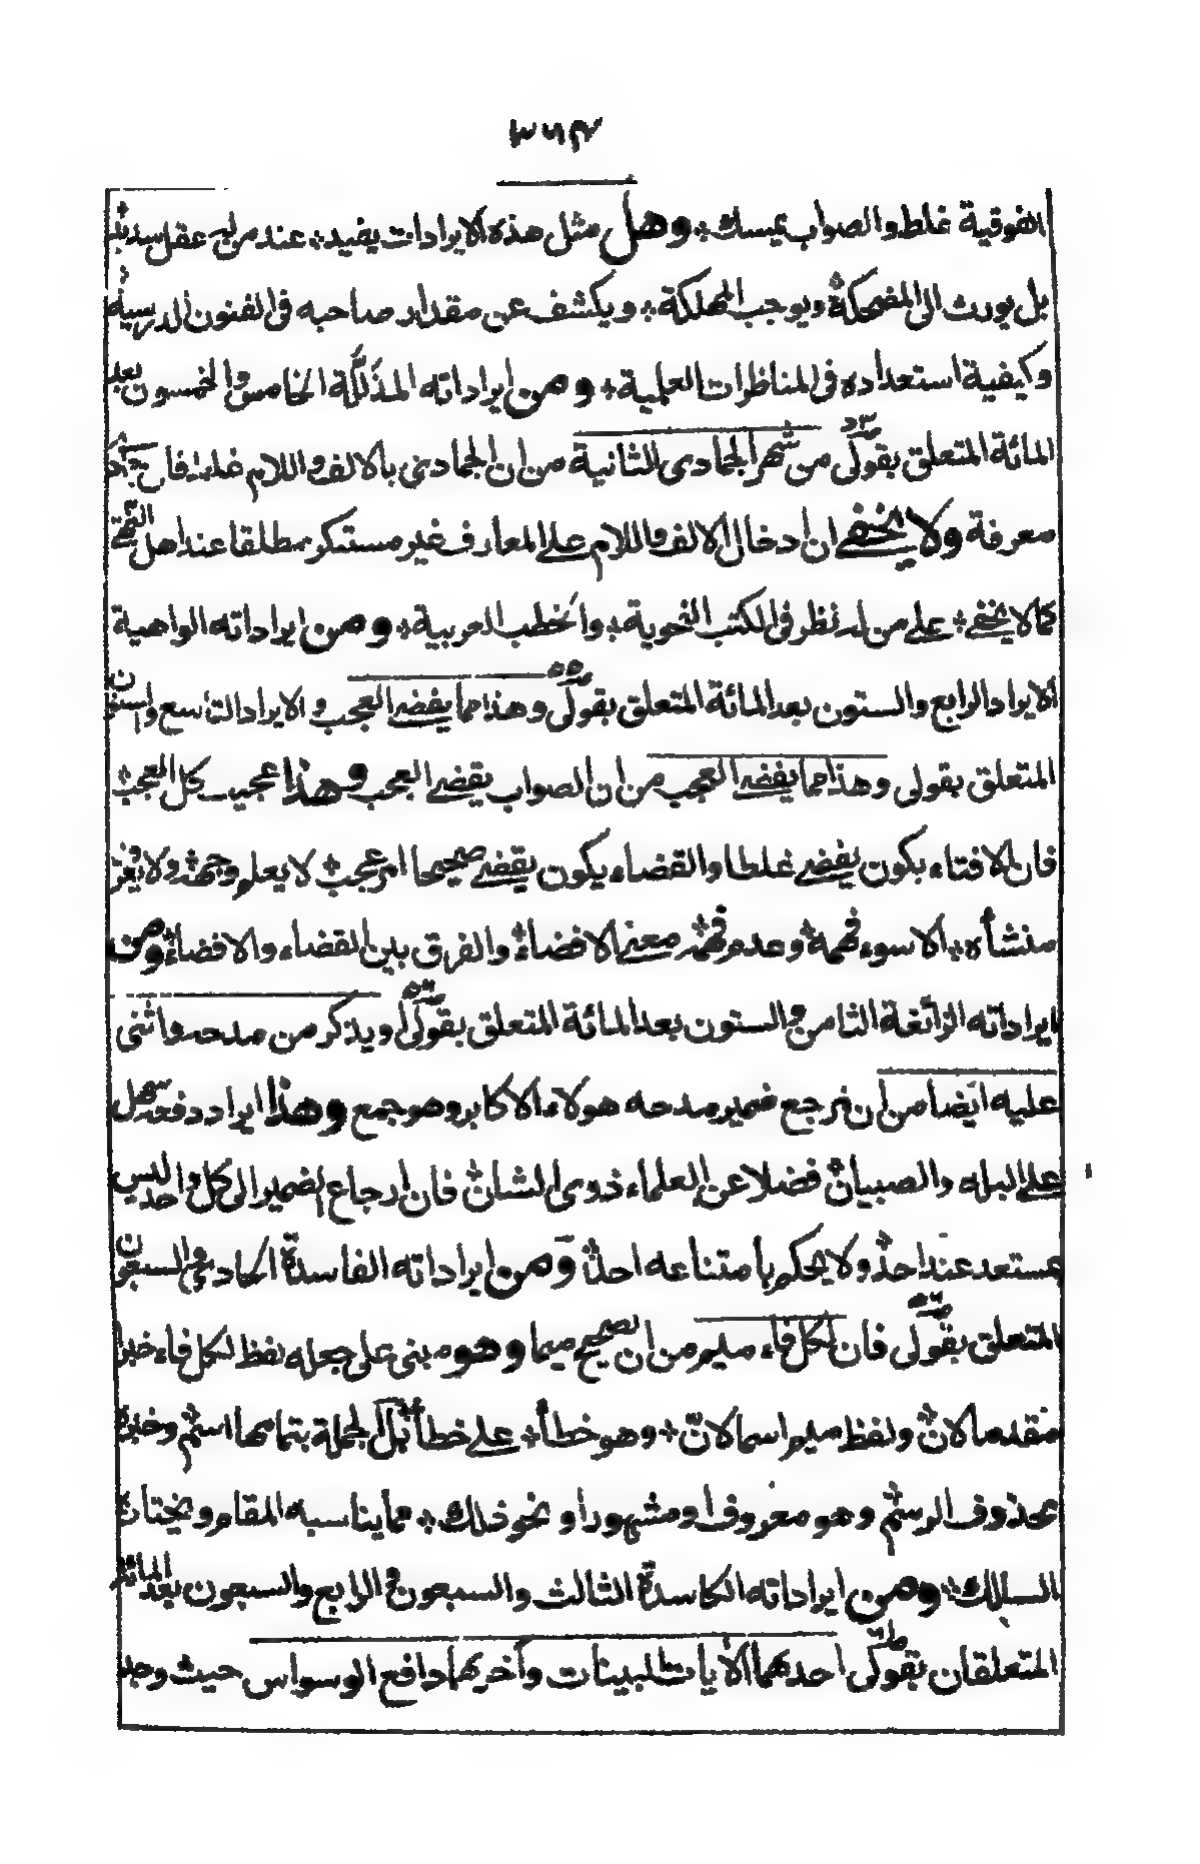 ٣٦٤
الفوقية غلط والصواب يمسك وهل مثل هذه الايرادات يفيد عند من له عقل سديد
بل يورث الى المضحكة ويوجب المهلكة ويكشف عن مقدار صاحبه فى الفنون الدرسية
وكيفية استعداده فى المناظرات العلمية ومن ايراداته المذللة الخامس والخمسون بعد
المائة المتعلق بقولى من شهر الجمادى الثانية من ان الجمادى بالالف واللام غلط فان
معرفة ولا يخفى ان ادخال الالف واللام على المعارف غير مستنكر مطلقا عند اهل
كما لا يخفى على من له نظر فى الكتب النحوية والخطب العربية ومن ايراداته الواهية
الايراد الرابع والستون بعد المائة المتعلق بقولى وهذا مما يفضى العجب والايراد التاسع والستون
المتعلق بقولى وهذا مما يفضى العجب من ان الصواب يقضى العجب وهذا عجيب كل العجب
فان الافتاء بكون يفضى غلطا والقضاء بكون يقضى صحيحا امر عجب لا يعلم وجهه ولا
منشأه الا سوء فهمه وعدم فهمه معنى الافضاء والفرق بين القضاء والافضاء ومن
ايراداته الزائغة الثامن والستون بعد المائة المتعلق بقولى ويذكر من مدحه واثنى
عليه ايضا من ان مرجع ضمير مدحه هولاء الاكابر وهو جمع وهذا ايراد دفعه سهل
على البله والصبيان فضلا عن العلماء ذوى الشان فان ارجاع الضمير الى كل واحد ليس
مستعد عند احد ولا يحكم بامتناعه احد ومن ايراداته الفاسدة الحادى والسبعون
المتعلق بقولى فان لكل فاء ميم من ان الصحيح ميما وهو مبنى على جعله لفظ لكل فاء خبرا
مقدما لان ولفظ ميم اسما لان وهو خطأ على خطأ بل الجملة بتمامها اسم وخبره
محذوف الرسم وهو معروف او مشهور او نحو ذلك مما يناسبه المقام ويختاره
السالك ومن ايراداته الكاسدة الثالث والسبعون والرابع والسبعون بعد المائة
المتعلقان بقولى احدهما الأيات البينات وأخريهما دافع الوسواس حيث وجد